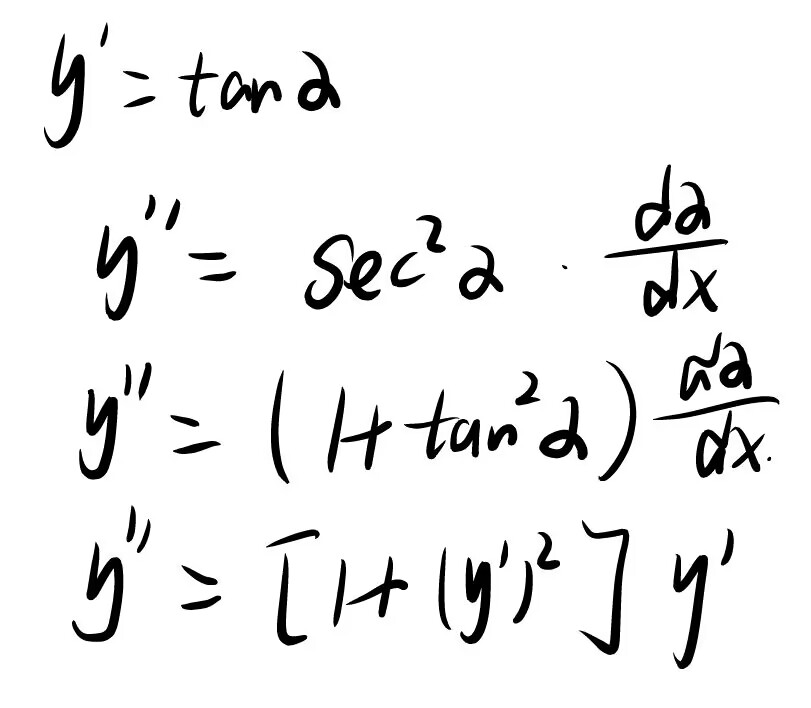 y' = tan α
y'' = sec² α · dα/dx
y'' = (1 + tan² α) dα/dx.
y'' = [1 + (y')²] y'